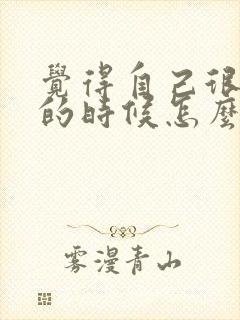 覺得自己很
的時候怎麼
雾漫青山